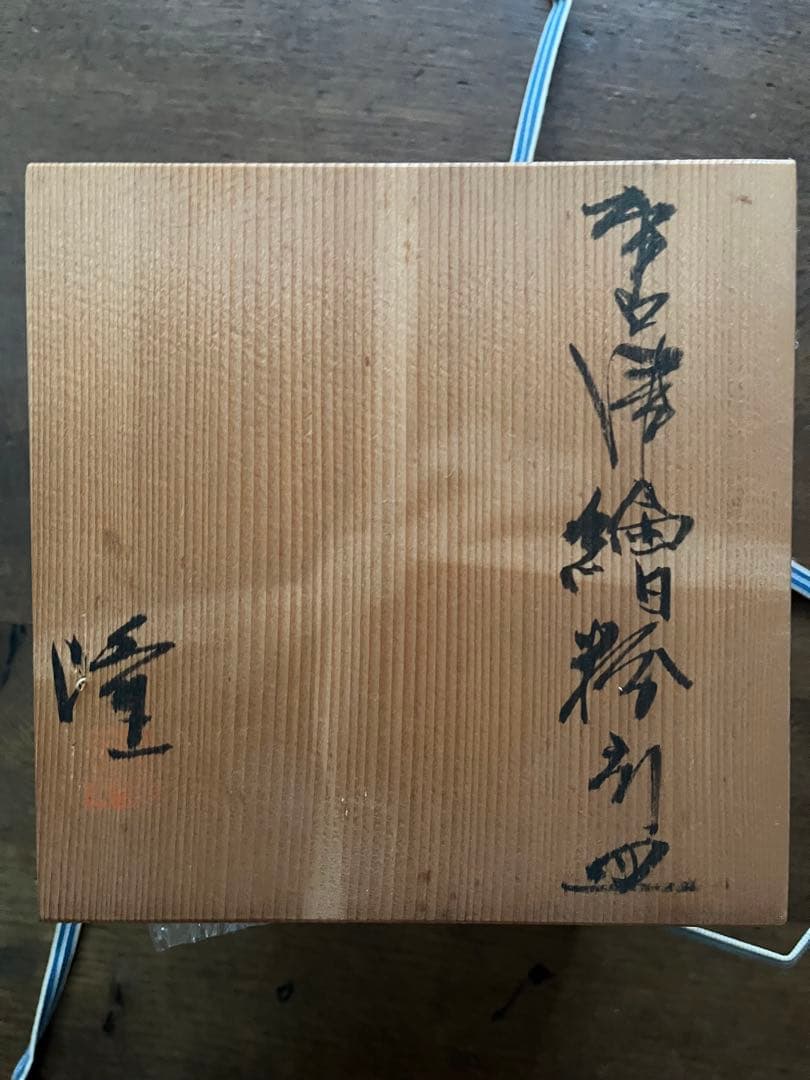 唐津繪粉引皿
隆